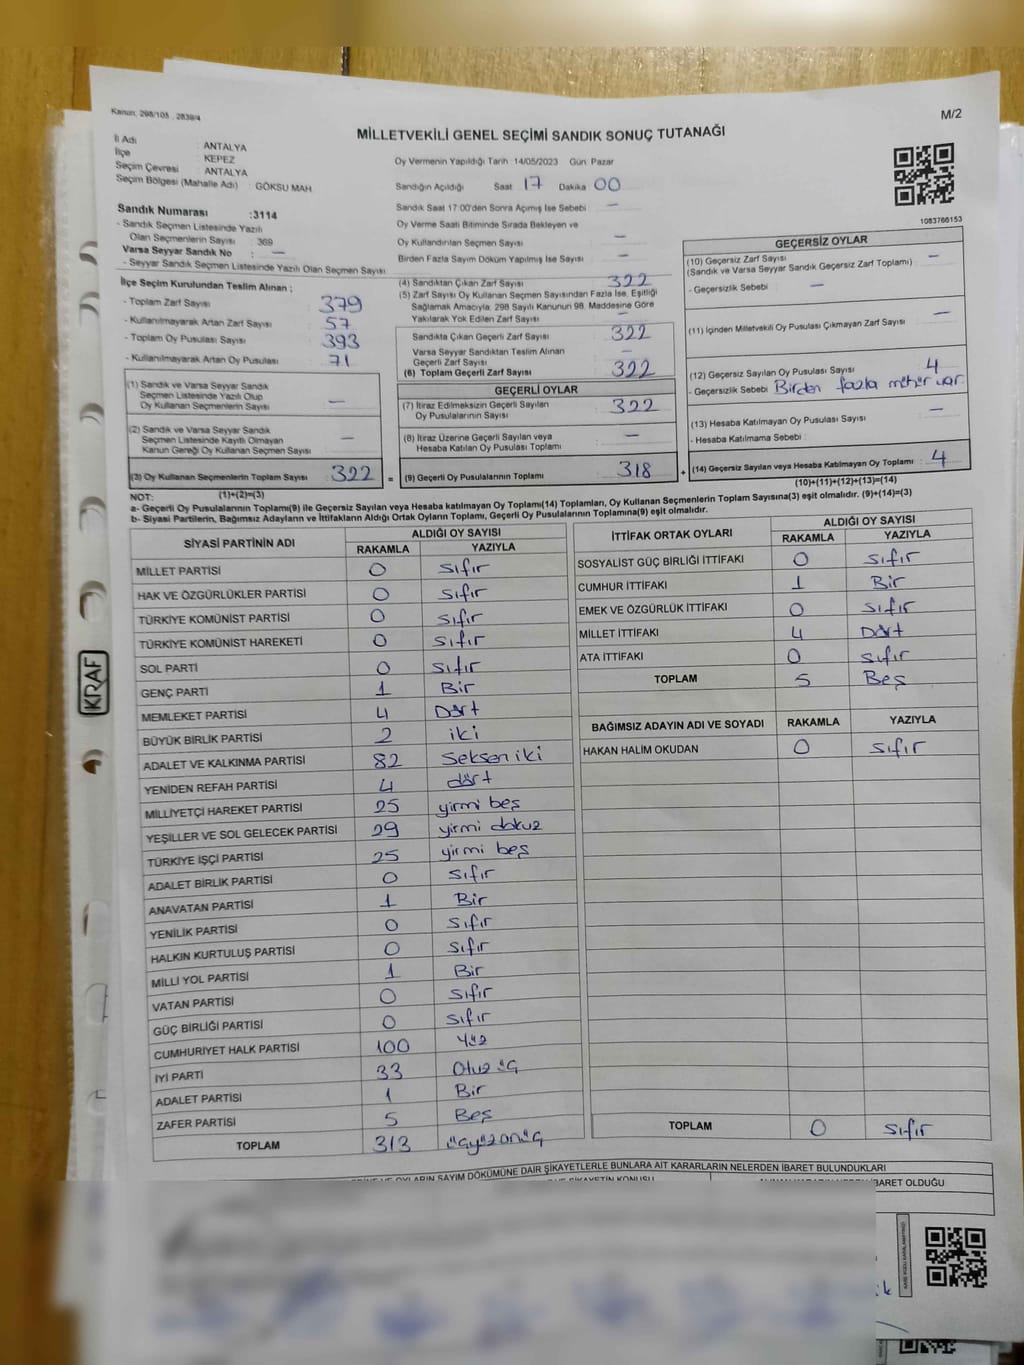 Kanun; 298/105 , 2839/4
M/2
MİLLETVEKİLİ GENEL SEÇİMİ SANDIK SONUÇ TUTANAĞI
İl Adı : ANTALYA
İlçe : KEPEZ
Seçim Çevresi : ANTALYA
Seçim Bölgesi (Mahalle Adı) GÖKSU MAH
Sandık Numarası :3114
- Sandık Seçmen Listesinde Yazılı
Olan Seçmenlerin Sayısı : 369
Varsa Seyyar Sandık No : —
- Seyyar Sandık Seçmen Listesinde Yazılı Olan Seçmen Sayısı
Oy Vermenin Yapıldığı Tarih :14/05/2023 Gün: Pazar
Sandığın Açıldığı Saat 17 Dakika 00
Sandık Saat 17:00'den Sonra Açımış İse Sebebi : —
Oy Verme Saati Bitiminde Sırada Bekleyen ve
Oy Kullandırılan Seçmen Sayısı —
Birden Fazla Sayım Döküm Yapılmış İse Sayısı —
1083766153
İlçe Seçim Kurulundan Teslim Alınan ;
- Toplam Zarf Sayısı : 379
- Kullanılmayarak Artan Zarf Sayısı : 57
- Toplam Oy Pusulası Sayısı : 393
- Kullanılmayarak Artan Oy Pusulası : 71
(1) Sandık ve Varsa Seyyar Sandık
Seçmen Listesinde Yazılı Olup
Oy Kullanan Seçmenlerin Sayısı —
(2) Sandık ve Varsa Seyyar Sandık
Seçmen Listesinde Kayıtlı Olmayan
Kanun Gereği Oy Kullanan Seçmen Sayısı —
(3) Oy Kullanan Seçmenlerin Toplam Sayısı 322
(1)+(2)=(3)
(4) Sandıktan Çıkan Zarf Sayısı : 322
(5) Zarf Sayısı Oy Kullanan Seçmen Sayısından Fazla İse, Eşitliği
Sağlamak Amacıyla, 298 Sayılı Kanunun 98. Maddesine Göre
Yakılarak Yok Edilen Zarf Sayısı —
Sandıkta Çıkan Geçerli Zarf Sayısı : 322
Varsa Seyyar Sandıktan Teslim Alınan
Geçerli Zarf Sayısı —
(6) Toplam Geçerli Zarf Sayısı : 322
GEÇERLİ OYLAR
(7) İtiraz Edilmeksizin Geçerli Sayılan
Oy Pusulalarının Sayısı : 322
(8) İtiraz Üzerine Geçerli Sayılan veya
Hesaba Katılan Oy Pusulası Toplamı —
= (9) Geçerli Oy Pusulalarının Toplamı : 318
GEÇERSİZ OYLAR
(10) Geçersiz Zarf Sayısı —
(Sandık ve Varsa Seyyar Sandık Geçersiz Zarf Toplamı)
- Geçersizlik Sebebi : —
(11) İçinden Milletvekili Oy Pusulası Çıkmayan Zarf Sayısı —
(12) Geçersiz Sayılan Oy Pusulası Sayısı : 4
- Geçersizlik Sebebi Birden fazla mühür var.
(13) Hesaba Katılmayan Oy Pusulası Sayısı —
- Hesaba Katılmama Sebebi :
+ (14) Geçersiz Sayılan veya Hesaba Katılmayan Oy Toplamı : 4
(10)+(11)+(12)+(13)=(14)
NOT:
a- Geçerli Oy Pusulalarının Toplamı(9) ile Geçersiz Sayılan veya Hesaba katılmayan Oy Toplamı(14) Toplamları, Oy Kullanan Seçmenlerin Toplam Sayısına(3) eşit olmalıdır. (9)+(14)=(3)
b- Siyasi Partilerin, Bağımsız Adayların ve İttifakların Aldığı Ortak Oyların Toplamı, Geçerli Oy Pusulalarının Toplamına(9) eşit olmalıdır.
SİYASİ PARTİNİN ADI ALDIĞI OY SAYISI
RAKAMLA YAZIYLA
MİLLET PARTİSİ 0 sıfır
HAK VE ÖZGÜRLÜKLER PARTİSİ 0 sıfır
TÜRKİYE KOMÜNİST PARTİSİ 0 sıfır
TÜRKİYE KOMÜNİST HAREKETİ 0 sıfır
SOL PARTİ 0 sıfır
GENÇ PARTİ 1 Bir
MEMLEKET PARTİSİ 4 Dört
BÜYÜK BİRLİK PARTİSİ 2 iki
ADALET VE KALKINMA PARTİSİ 82 Seksen iki
YENİDEN REFAH PARTİSİ 4 dört
MİLLİYETÇİ HAREKET PARTİSİ 25 yirmi beş
YEŞİLLER VE SOL GELECEK PARTİSİ 29 yirmi dokuz
TÜRKİYE İŞÇİ PARTİSİ 25 yirmi beş
ADALET BİRLİK PARTİSİ 0 sıfır
ANAVATAN PARTİSİ 1 Bir
YENİLİK PARTİSİ 0 sıfır
HALKIN KURTULUŞ PARTİSİ 0 sıfır
MİLLİ YOL PARTİSİ 1 Bir
VATAN PARTİSİ 0 sıfır
GÜÇ BİRLİĞİ PARTİSİ 0 sıfır
CUMHURİYET HALK PARTİSİ 100 Yüz
İYİ PARTİ 33 Otuz üç
ADALET PARTİSİ 1 Bir
ZAFER PARTİSİ 5 Beş
TOPLAM 313 üçyüzonüç
İTTİFAK ORTAK OYLARI ALDIĞI OY SAYISI
RAKAMLA YAZIYLA
SOSYALİST GÜÇ BİRLİĞİ İTTİFAKI 0 sıfır
CUMHUR İTTİFAKI 1 Bir
EMEK VE ÖZGÜRLÜK İTTİFAKI 0 sıfır
MİLLET İTTİFAKI 4 Dört
ATA İTTİFAKI 0 sıfır
TOPLAM 5 Beş
BAĞIMSIZ ADAYIN ADI VE SOYADI RAKAMLA YAZIYLA
HAKAN HALİM OKUDAN 0 sıfır
TOPLAM 0 sıfır
OYLARIN SAYIM DÖKÜMÜNE DAİR ŞİKAYETLERLE BUNLARA AİT KARARLARIN NELERDEN İBARET BULUNDUKLARI
İBARET OLDUĞU
KRAF